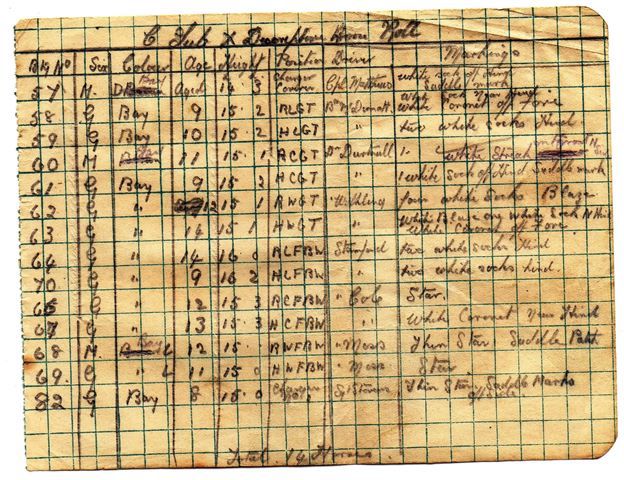 C Sub X Devonshire Horse Roll
Big No Sex Colour Age Height Position Driver Markings
57 M. Bay Aged 14 3 Charger Cpl. Matthews white sock off Hind Saddle mark
58 G Bay 9 15. 2 RLGT Br McDermott white Coronet off Fore
59 G Bay 10 15. 2 HLGT " two white socks Hind
60 M Bay 11 15. 1 RCGT Dr white Streak
61 G Bay 9 15 2 HCGT " 1 white Sock off Hind Saddle mark
62 G " 12 15 1 RWGT " four white Socks Blaze
63 G " 14 15 1 HWGT White Coronet off Fore.
64 G " 14 16 0 RLFBW Stanford two white socks Hind
70 G " 9 16 2 HLFBW " two white socks hind.
65 G " 12 15. 3 RCFBW " Cole Star.
67 G " 13 15. 3 HCFBW " White Coronet Near Hind
68 M. Bay L 12 15. RWFBW " Moss Thin Star Saddle
69. G " L 11 15 0 HWFBW " Moss Star
82 G Bay 8 15. 0 Charger Sgt Stevens Thin Star, Saddle Marks
off Side.
Total. 14 Horses.